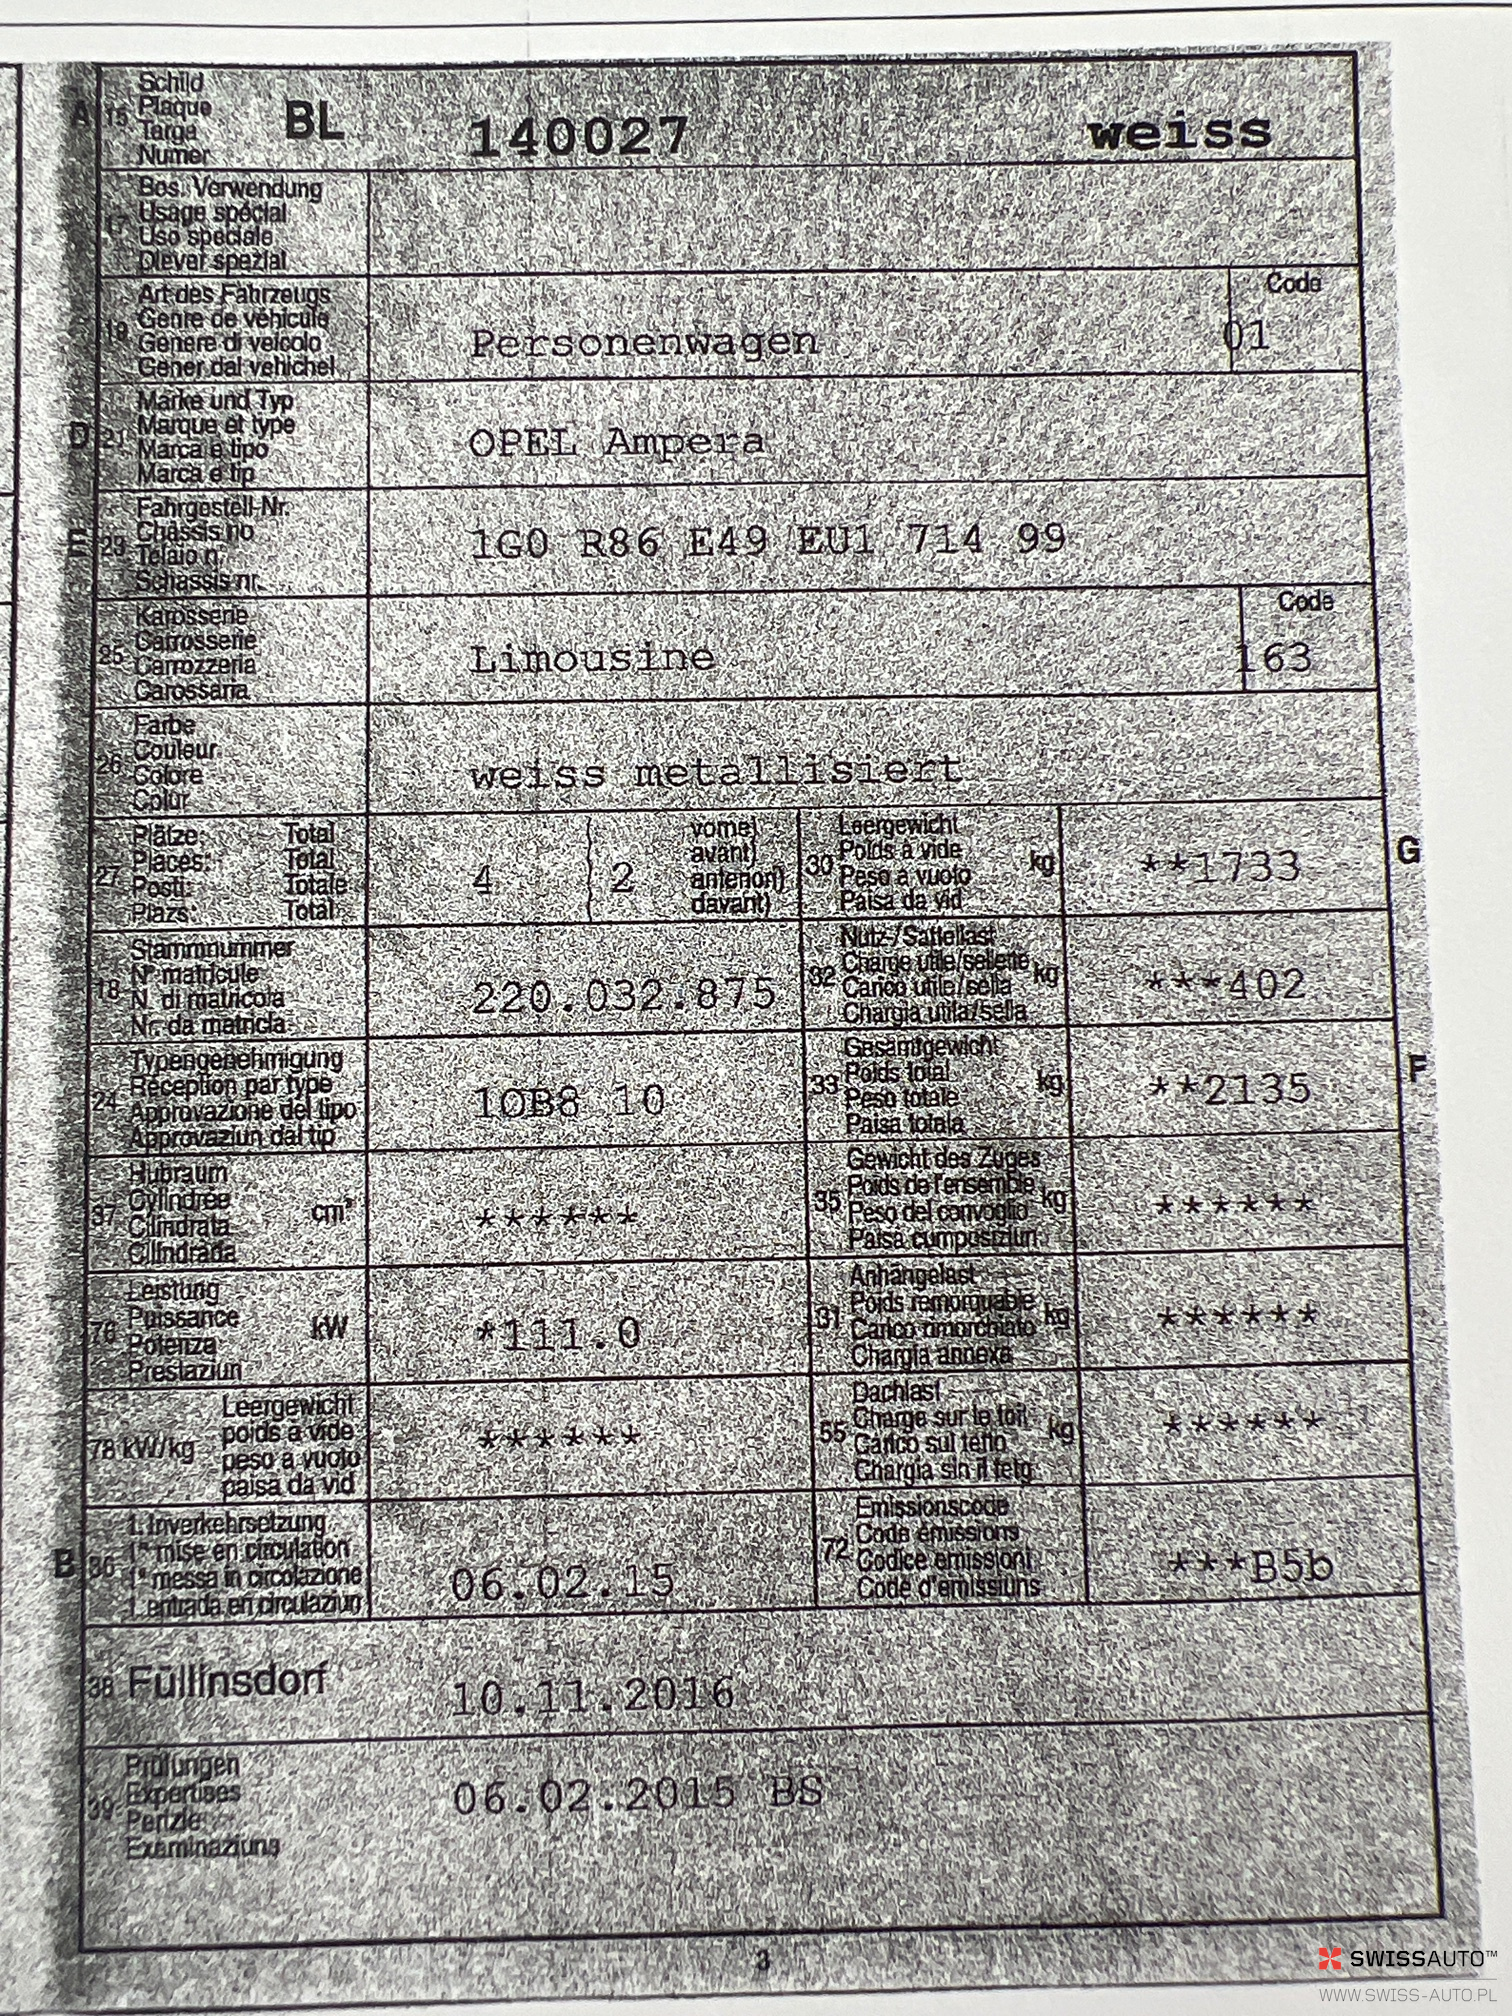 A 15 Schild
Plaque
Targa
Numer
BL 140027 weiss
17 Bes. Verwendung
Usage spécial
Uso speciale
Diever spezial
19 Art des Fahrzeugs
Genre de véhicule
Genere di veicolo
Gener dal vehichel
Personenwagen
Code
01
D 21 Marke und Typ
Marque et type
Marca e tipo
Marca e tip
OPEL Ampera
E 23 Fahrgestell-Nr.
Châssis no
Telaio n.
Schassis nr.
1G0 R86 E49 EU1 714 99
25 Karosserie
Carrosserie
Carrozzeria
Carossaria
Limousine
Code
163
26 Farbe
Couleur
Colore
Colur
weiss metallisiert
27 Plätze: Total
Places: Total
Posti: Totale
Plazs: Total
4 2
vorne)
avant)
anteriori)
davant)
30 Leergewicht
Poids à vide
Peso a vuoto
Paisa da vid
kg
**1733
G
18 Stammnummer
N° matricule
N. di matricola
Nr. da matricla
220.032.875
32 Nutz-/Sattellast
Charge utile/sellette
Carico utile/sella
Chargia utila/sella
kg
***402
24 Typengenehmigung
Réception par type
Approvazione del tipo
Approvaziun dal tip
1OB8 10
33 Gesamtgewicht
Poids total
Peso totale
Paisa totala
kg
**2135
F
37 Hubraum
Cylindrée
Cilindrata
Cilindrada
cm³
******
35 Gewicht des Zuges
Poids de l'ensemble
Peso del convoglio
Paisa cumposiziun
kg
******
76 Leistung
Puissance
Potenza
Prestaziun
kW
*111.0
31 Anhängelast
Poids remorquable
Carico rimorchiato
Chargia annexa
kg
******
78 kW/kg
Leergewicht
poids à vide
peso a vuoto
paisa da vid
******
55 Dachlast
Charge sur le toit
Carico sul tetto
Chargia sin il tetg
kg
******
B 36 1. Inverkehrsetzung
1re mise en circulation
1a messa in circolazione
1. entrada en circulaziun
06.02.15
72 Emissionscode
Code émissions
Codice emissioni
Code d'emissiuns
***B5b
38 Füllinsdorf 10.11.2016
39 Prüfungen
Expertises
Perizie
Examinaziuns
06.02.2015 BS
3
SWISSAUTO™
WWW.SWISS-AUTO.PL